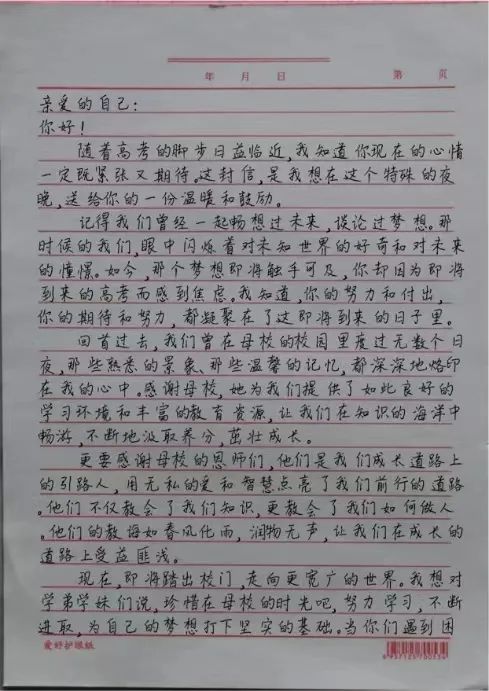 年 月 日 第 页
亲爱的自己：
你好！
随着高考的脚步日益临近，我知道你现在的心情
一定既紧张又期待。这封信，是我想在这个特殊的夜
晚，送给你的一份温暖和鼓励。
记得我们曾经一起畅想过未来，谈论过梦想。那
时候的我们，眼中闪烁着对未知世界的好奇和对未来
的憧憬。如今，那个梦想即将触手可及，你却因为即将
到来的高考而感到焦虑。我知道，你的努力和付出，
你的期待和努力，都凝聚在了这即将到来的日子里。
回首过去，我们曾在母校的校园里度过无数个日
夜，那些熟悉的景象、那些温馨的记忆，都深深地烙印
在我的心中。感谢母校，她为我们提供了如此良好的
学习环境和丰富的教育资源，让我们在知识的海洋中
畅游，不断地汲取养分，茁壮成长。
更要感谢母校的恩师们，他们是我们成长道路上
的引路人，用无私的爱和智慧点亮了我们前行的道路
。他们不仅教会了我们知识，更教会了我们如何做人
。他们的教诲如春风化雨，润物无声，让我们在成长的
道路上受益匪浅。
现在，即将踏出校门，走向更宽广的世界。我想对
学弟学妹们说，珍惜在母校的时光吧，努力学习，不断
进取，为自己的梦想打下坚实的基础。当你们遇到困
爱好护眼纸
6 937125 700334